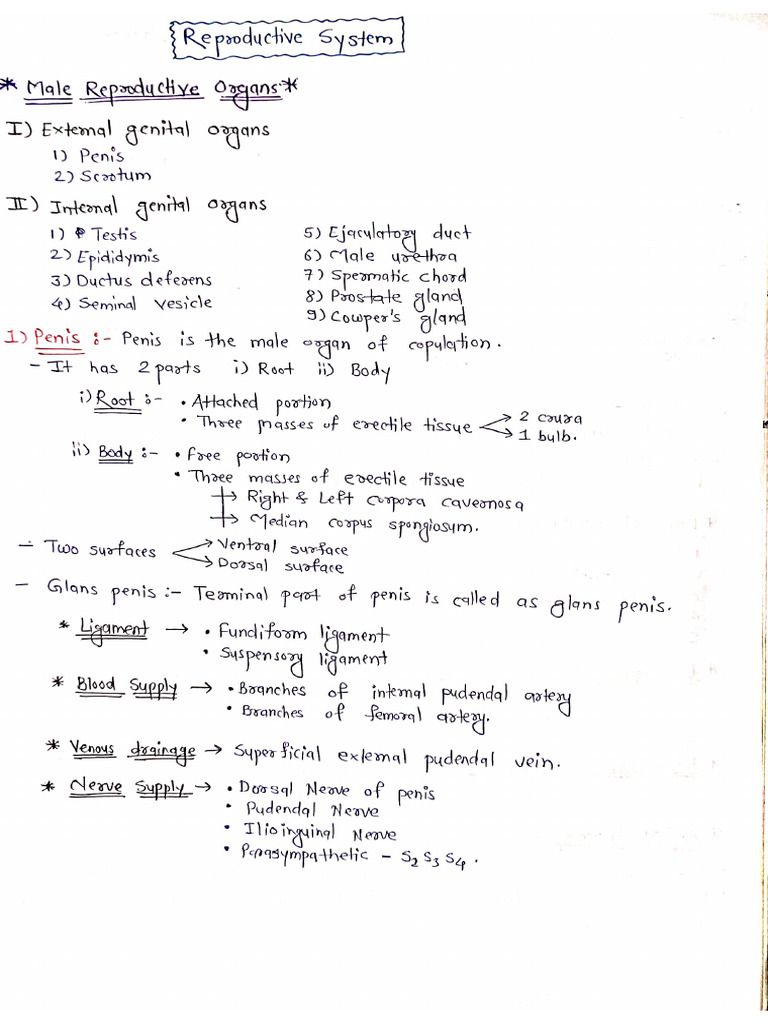 Reproductive System
* Male Reproductive Organs *
I) External genital organs
1) Penis
2) Scrotum
II) Internal genital organs
1) Testis
2) Epididymis
3) Ductus deferens
4) Seminal vesicle
5) Ejaculatory duct
6) Male urethra
7) Spermatic chord
8) Prostate gland
9) Cowper's gland
1) Penis :- Penis is the male organ of copulation.
- It has 2 parts i) Root ii) Body
i) Root :- • Attached portion
• Three masses of erectile tissue → 2 crura
→ 1 bulb.
ii) Body :- • Free portion
• Three masses of erectile tissue
→ Right & Left corpora cavernosa
→ Median corpus spongiosym.
- Two surfaces → Ventral surface
→ Dorsal surface
- Glans penis :- Terminal part of penis is called as glans penis.
* Ligament → • Fundiform ligament
• Suspensory ligament
* Blood Supply → • Branches of internal pudendal artery
• Branches of femoral artery.
* Venous drainage → Superficial external pudendal vein.
* Nerve Supply → • Dorsal Nerve of penis
• Pudendal Nerve
• Ilioinguinal Nerve
• Parasympathetic - S2 S3 S4.